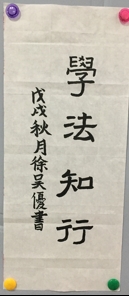 學法知行
戊戌秋月徐吴優書